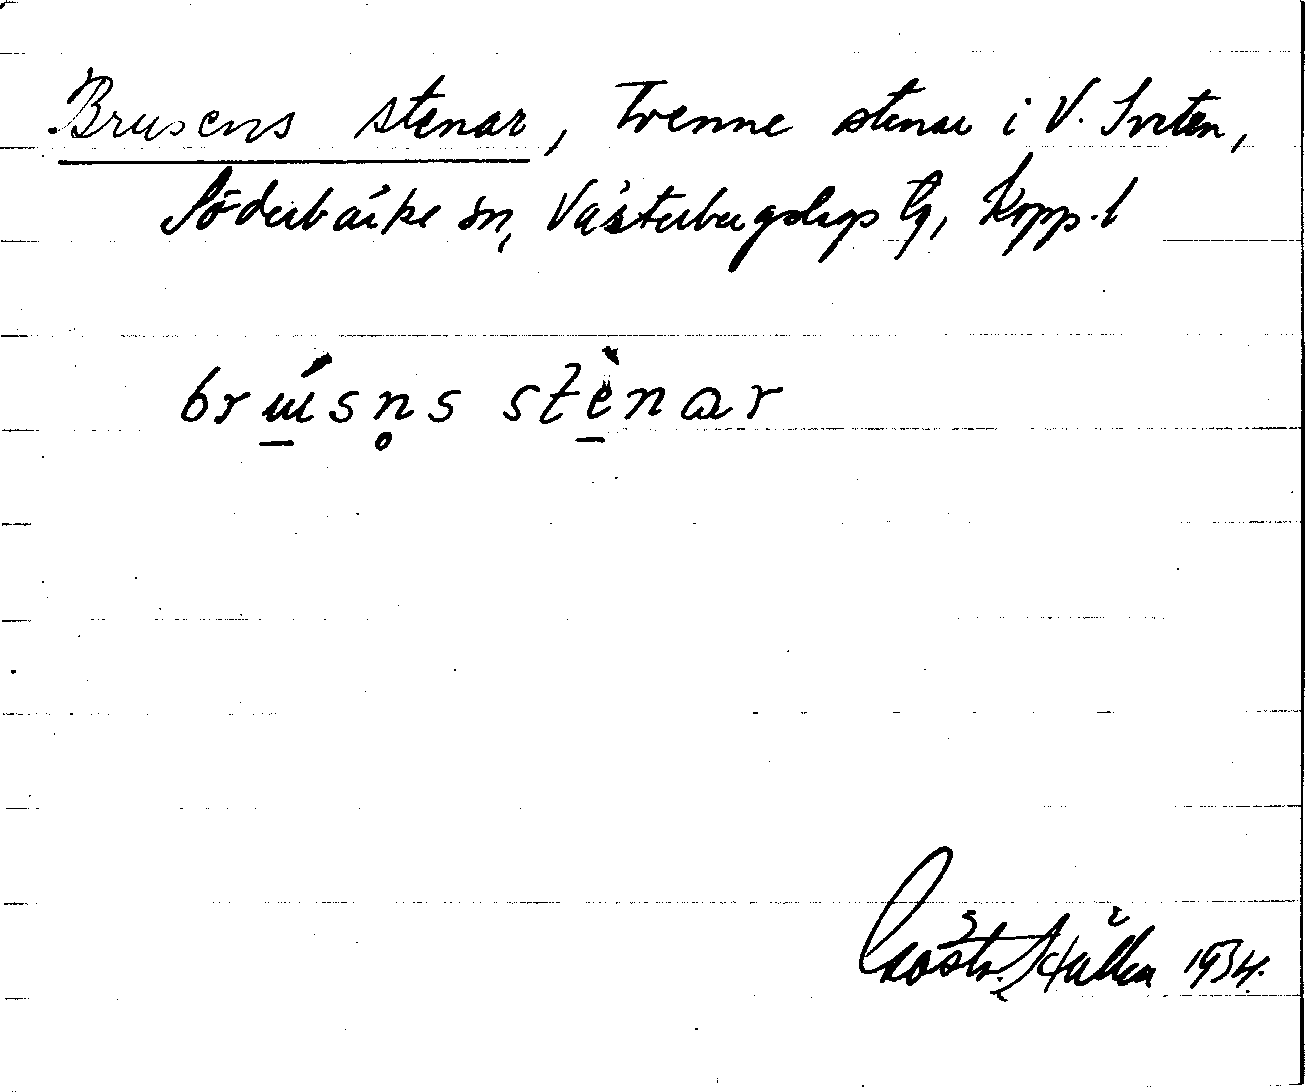 Brusens stenar, Trenne stenar i V. Svten,
Söderbärke sn, Västerbergslags tg, Kopp. l
brɯ́sn̥s stènar
Hållen 1934.